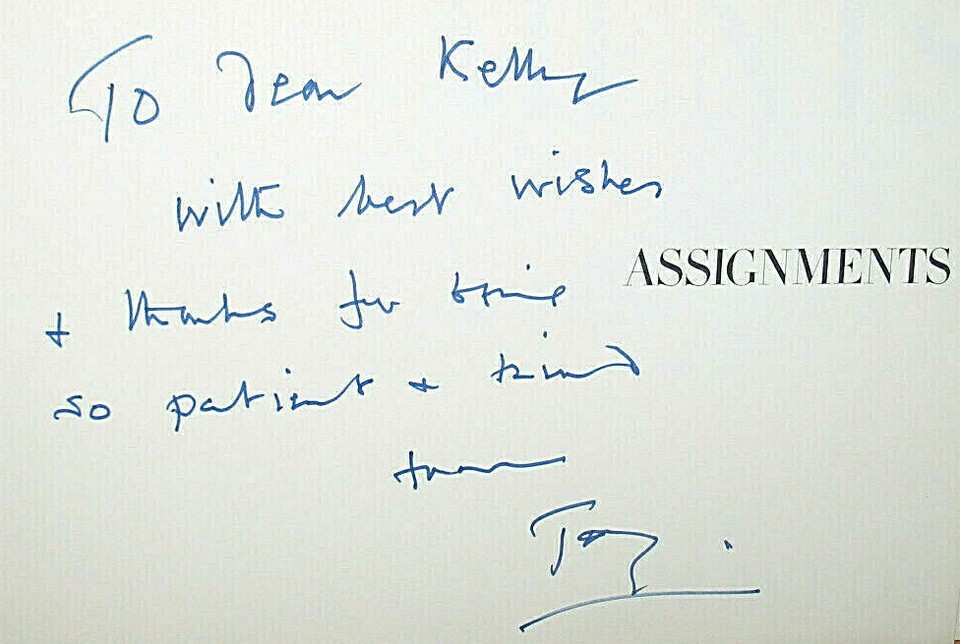 To Dear Kelly
with best wishes
ASSIGNMENTS
+ thanks for being
so patient + kind
from
Tony.